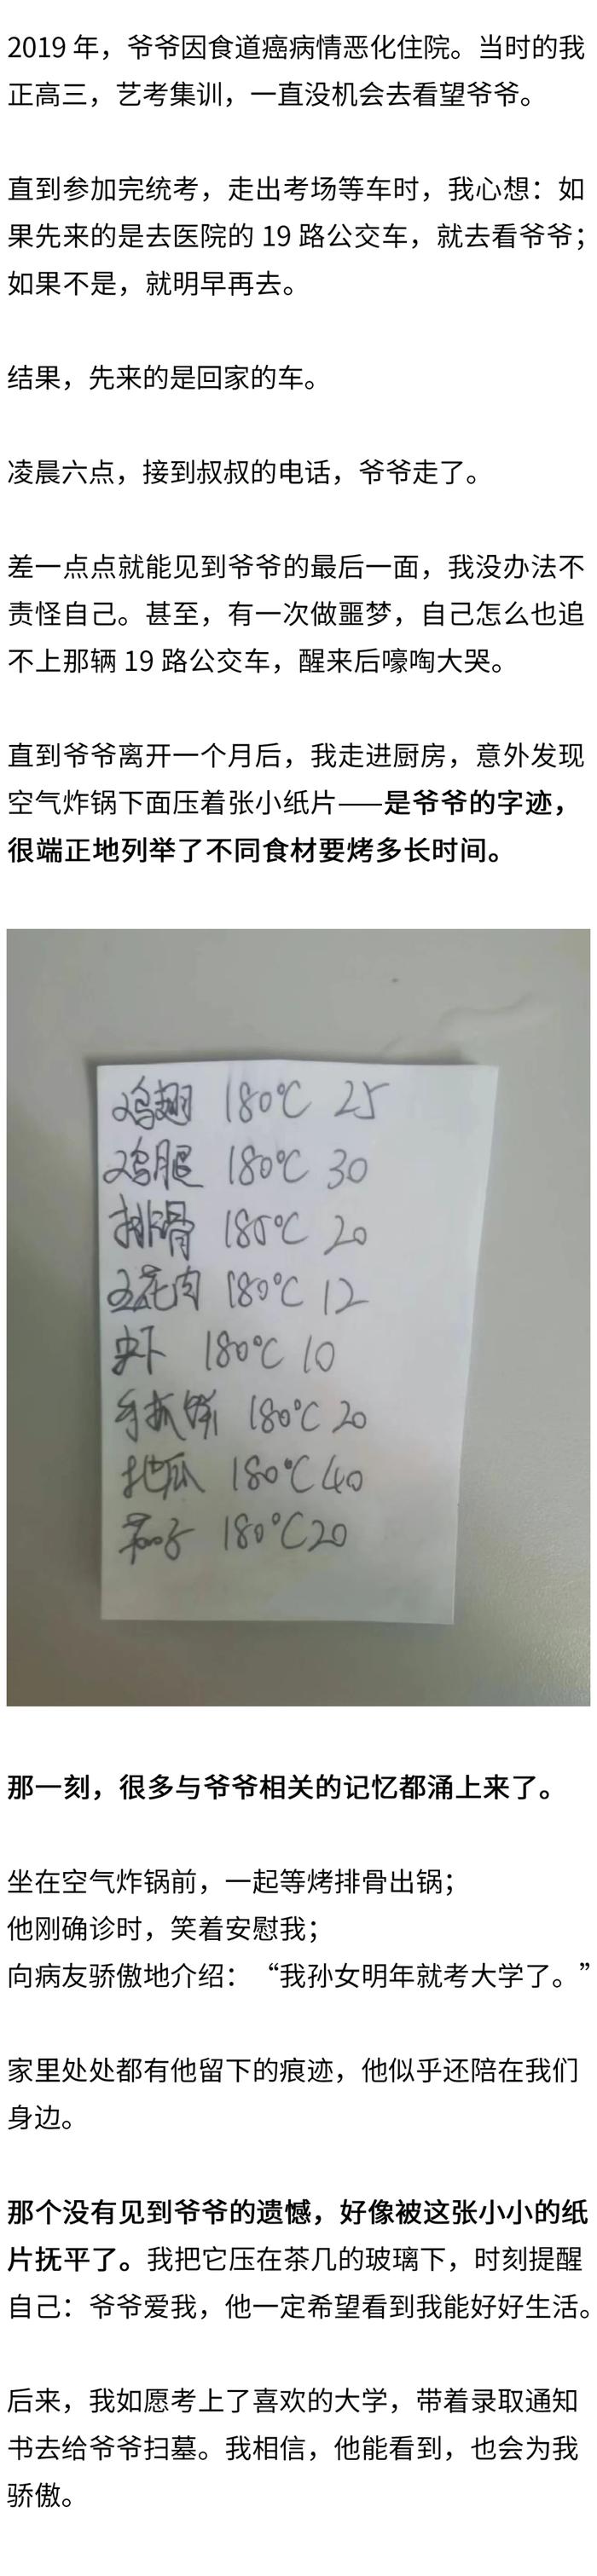 2019 年，爷爷因食道癌病情恶化住院。当时的我
正高三，艺考集训，一直没机会去看望爷爷。
直到参加完统考，走出考场等车时，我心想：如
果先来的是去医院的 19 路公交车，就去看爷爷；
如果不是，就明早再去。
结果，先来的是回家的车。
凌晨六点，接到叔叔的电话，爷爷走了。
差一点点就能见到爷爷的最后一面，我没办法不
责怪自己。甚至，有一次做噩梦，自己怎么也追
不上那辆 19 路公交车，醒来后嚎啕大哭。
直到爷爷离开一个月后，我走进厨房，意外发现
空气炸锅下面压着张小纸片——是爷爷的字迹，
很端正地列举了不同食材要烤多长时间。
鸡翅 180℃ 25
鸡腿 180℃ 30
排骨 180℃ 20
五花肉 180℃ 12
虾 180℃ 10
手抓饼 180℃ 20
地瓜 180℃ 40
茄子 180℃ 20
那一刻，很多与爷爷相关的记忆都涌上来了。
坐在空气炸锅前，一起等烤排骨出锅；
他刚确诊时，笑着安慰我；
向病友骄傲地介绍：“我孙女明年就考大学了。”
家里处处都有他留下的痕迹，他似乎还陪在我们
身边。
那个没有见到爷爷的遗憾，好像被这张小小的纸
片抚平了。我把它压在茶几的玻璃下，时刻提醒
自己：爷爷爱我，他一定希望看到我能好好生活。
后来，我如愿考上了喜欢的大学，带着录取通知
书去给爷爷扫墓。我相信，他能看到，也会为我
骄傲。